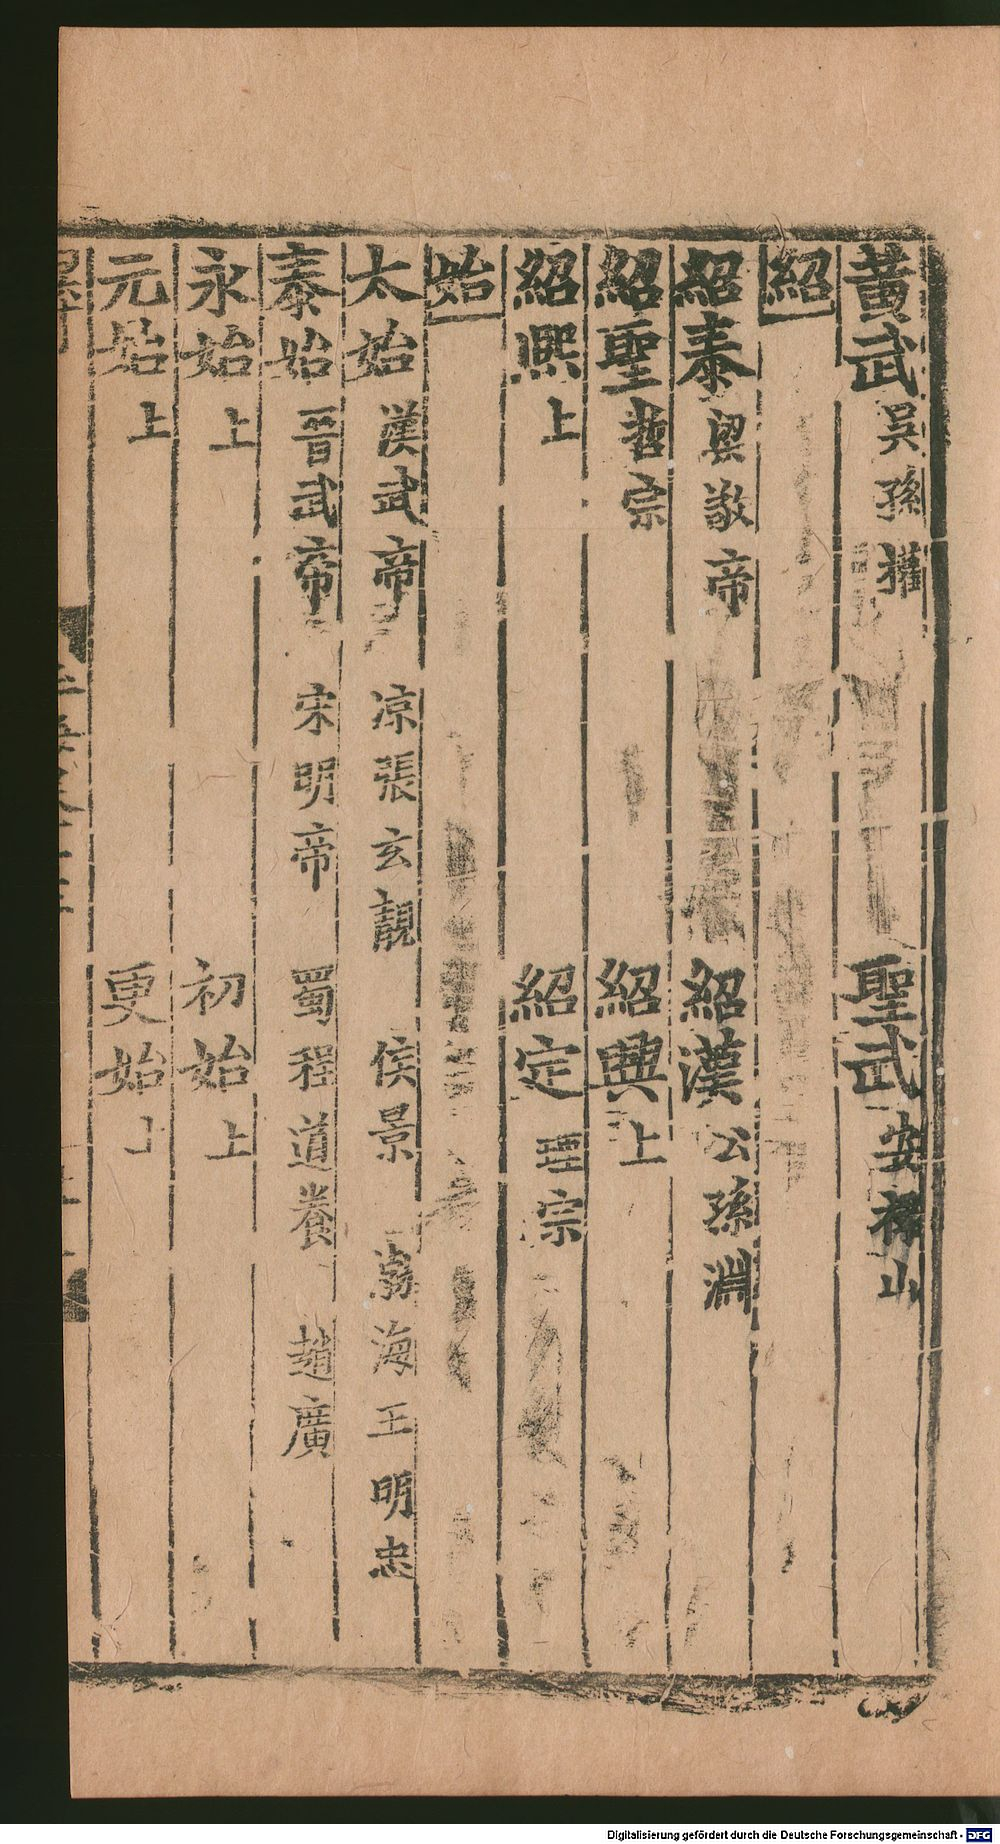 黃武 吳孫權 聖武 安祿山
紹
紹泰 梁敬帝 紹漢 公孫淵
紹聖 哲宗 紹興 上
紹熙 上 紹定 理宗
始
太始 漢武帝 凉張玄靚 侯景 渤海王明忠
泰始 晉武帝 宋明帝 蜀程道養 趙廣
永始 上 初始 上
元始 上 更始
Digitalisierung gefördert durch die Deutsche Forschungsgemeinschaft - DFG